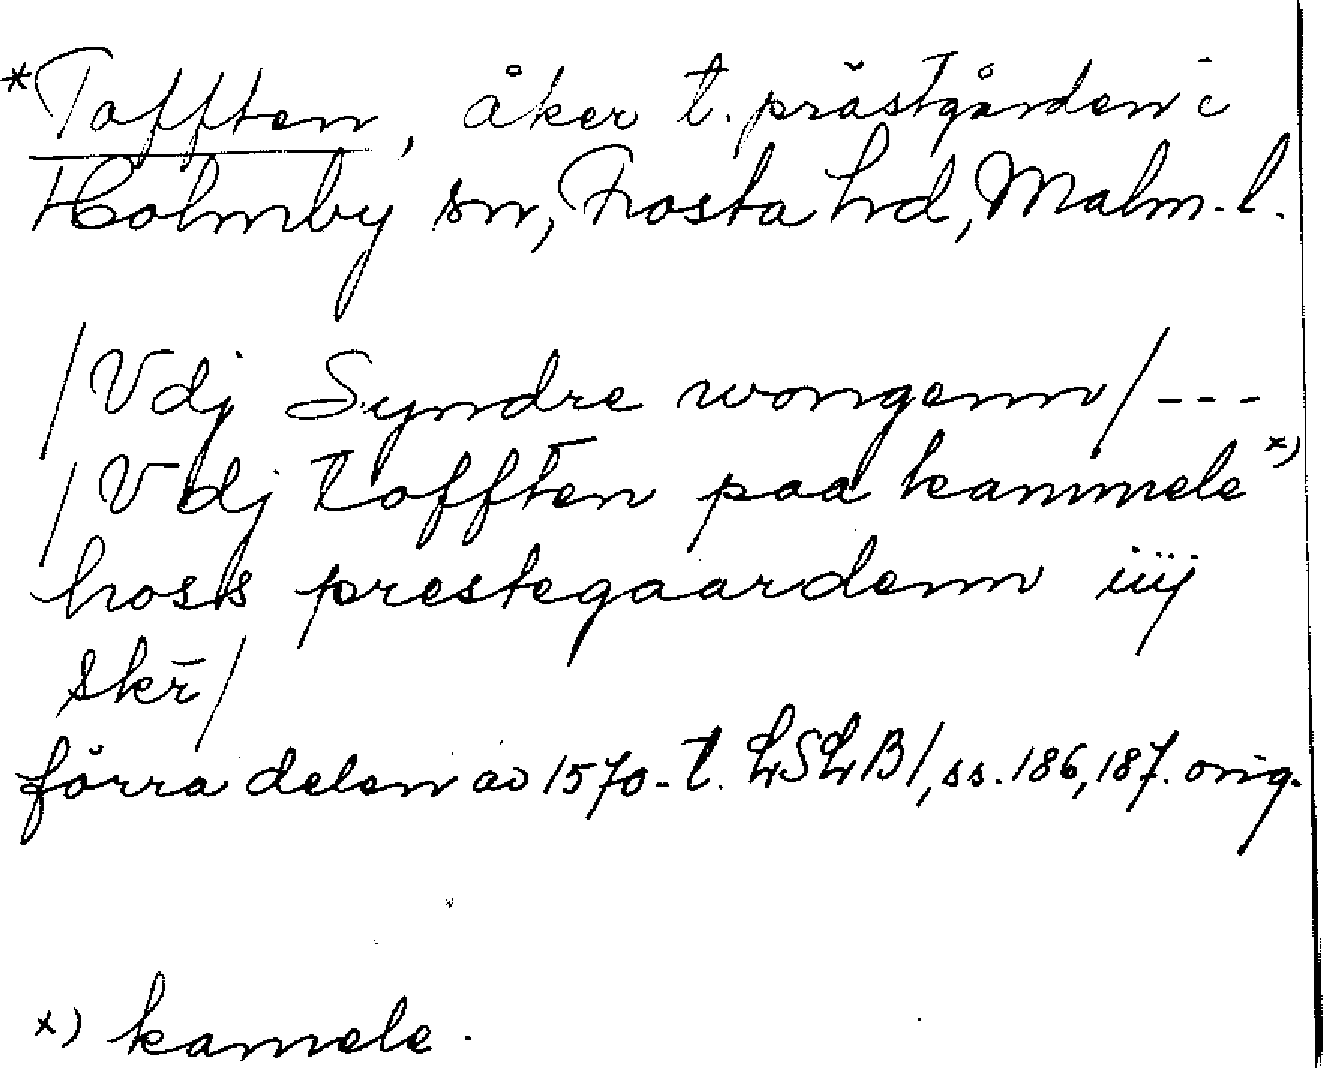 *Tofften, åker t. prästgården i
Holmby sn, Frosta hd, Malm. l.
/Vdj Syndre wongenn/---
/Vdj tofften paa kammele x)
hoss prestegaardenn iiij
skr̄/
förra delen av 1570-t. LSLB1, ss. 186, 187. orig.
x) kamele.